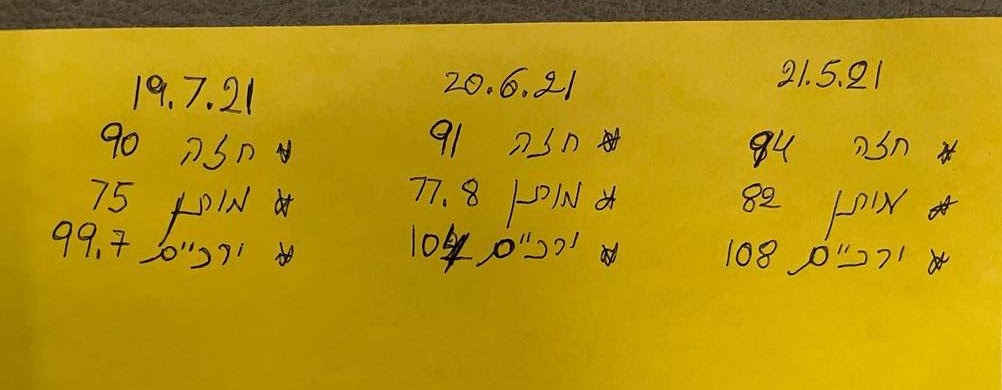 21.5.21
* חזה 94
* מותן 82
* ירכיים 108
20.6.21
* חזה 91
* מותן 77.8
* ירכיים
19.7.21
* חזה 90
* מותן 75
* ירכיים 99.7